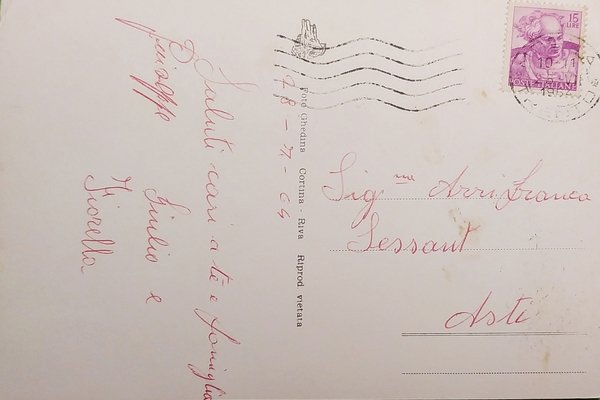 Saluti cari a te e famiglia
Giuseppe
Giulio e
Fiorella
Foto Ghedina Cortina - Riva Riprod vietata
15
LIRE
POSTE ITALIANE
10-11
Sig.na Arri Franca
Sessant
Asti